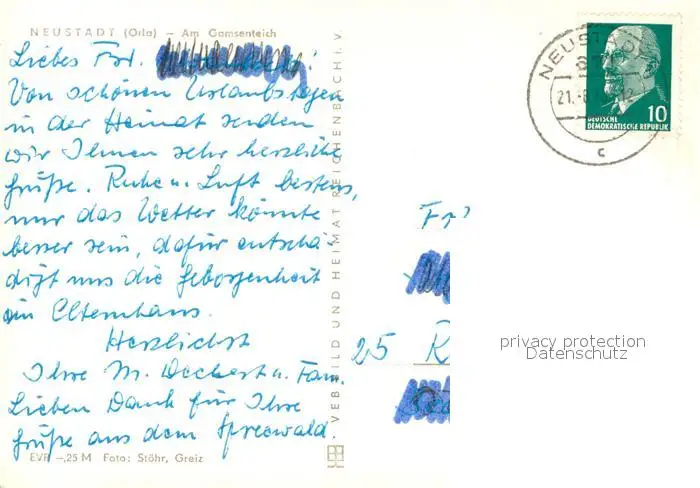 NEUSTADT (Orla) — Am Gamsenteich
Liebes Frl.
Von schönen Urlaubstagen
in der Heimat senden
wir Ihnen sehr herzliche
Grüße. Ruhe u. Luft bestens,
nur das Wetter könnte
besser sein, dafür entschä-
digt uns die Geborgenheit
im Elternhaus.
Herzlichst
Ihre M. Deckert u. Fam.
Lieben Dank für Ihre
Grüße aus dem Spreewald.
EVP –,25 M Foto: Stöhr, Greiz
VEB BILD UND HEIMAT REICHENBACH I. V.
NEUSTADT
21.-8.
c
10
DEUTSCHE
DEMOKRATISCHE REPUBLIK
Fr
25 R
privacy protection
Datenschutz